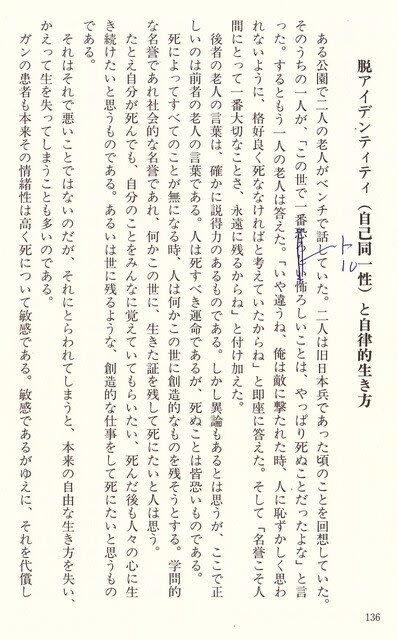 脱アイデンティティ（自己同一性）と自律的生き方
ある公園で二人の老人がベンチで話していた。二人は旧日本兵であった頃のことを回想していた。
そのうちの一人が、「この世で一番恐ろしい怖ろしいことは、やっぱり死ぬことだったよな」と言
った。するともう一人の老人は答えた。「いや違うね、俺は敵に撃たれた時、人に恥ずかしく思わ
れないように、格好良く死ななければと考えていたからね」と即座に答えた。そして「名誉こそ人
間にとって一番大切なことさ、永遠に残るからね」と付け加えた。
後者の老人の言葉は、確かに説得力のあるものである。しかし異論もあるとは思うが、ここで正
しいのは前者の老人の言葉である。人は死すべき運命であるが、死ぬことは皆恐いものである。
死によってすべてのことが無になる時、人は何かこの世に創造的なものを残そうとする。学問的
な名誉であれ社会的な名誉であれ、何かこの世に、生きた証を残して死にたいと人は思う。
たとえ自分が死んでも、自分のことをみんなに覚えていてもらいたい、死んだ後も人々の心に生
き続けたいと思うものである。あるいは世に残るような、創造的な仕事をして死にたいと思うもの
である。
それはそれで悪いことではないのだが、それにとらわれてしまうと、本来の自由な生き方を失い、
かえって生を失ってしまうことも多いのである。
ガンの患者も本来その情緒性は高く死について敏感である。敏感であるがゆえに、それを代償し
ト
10
136